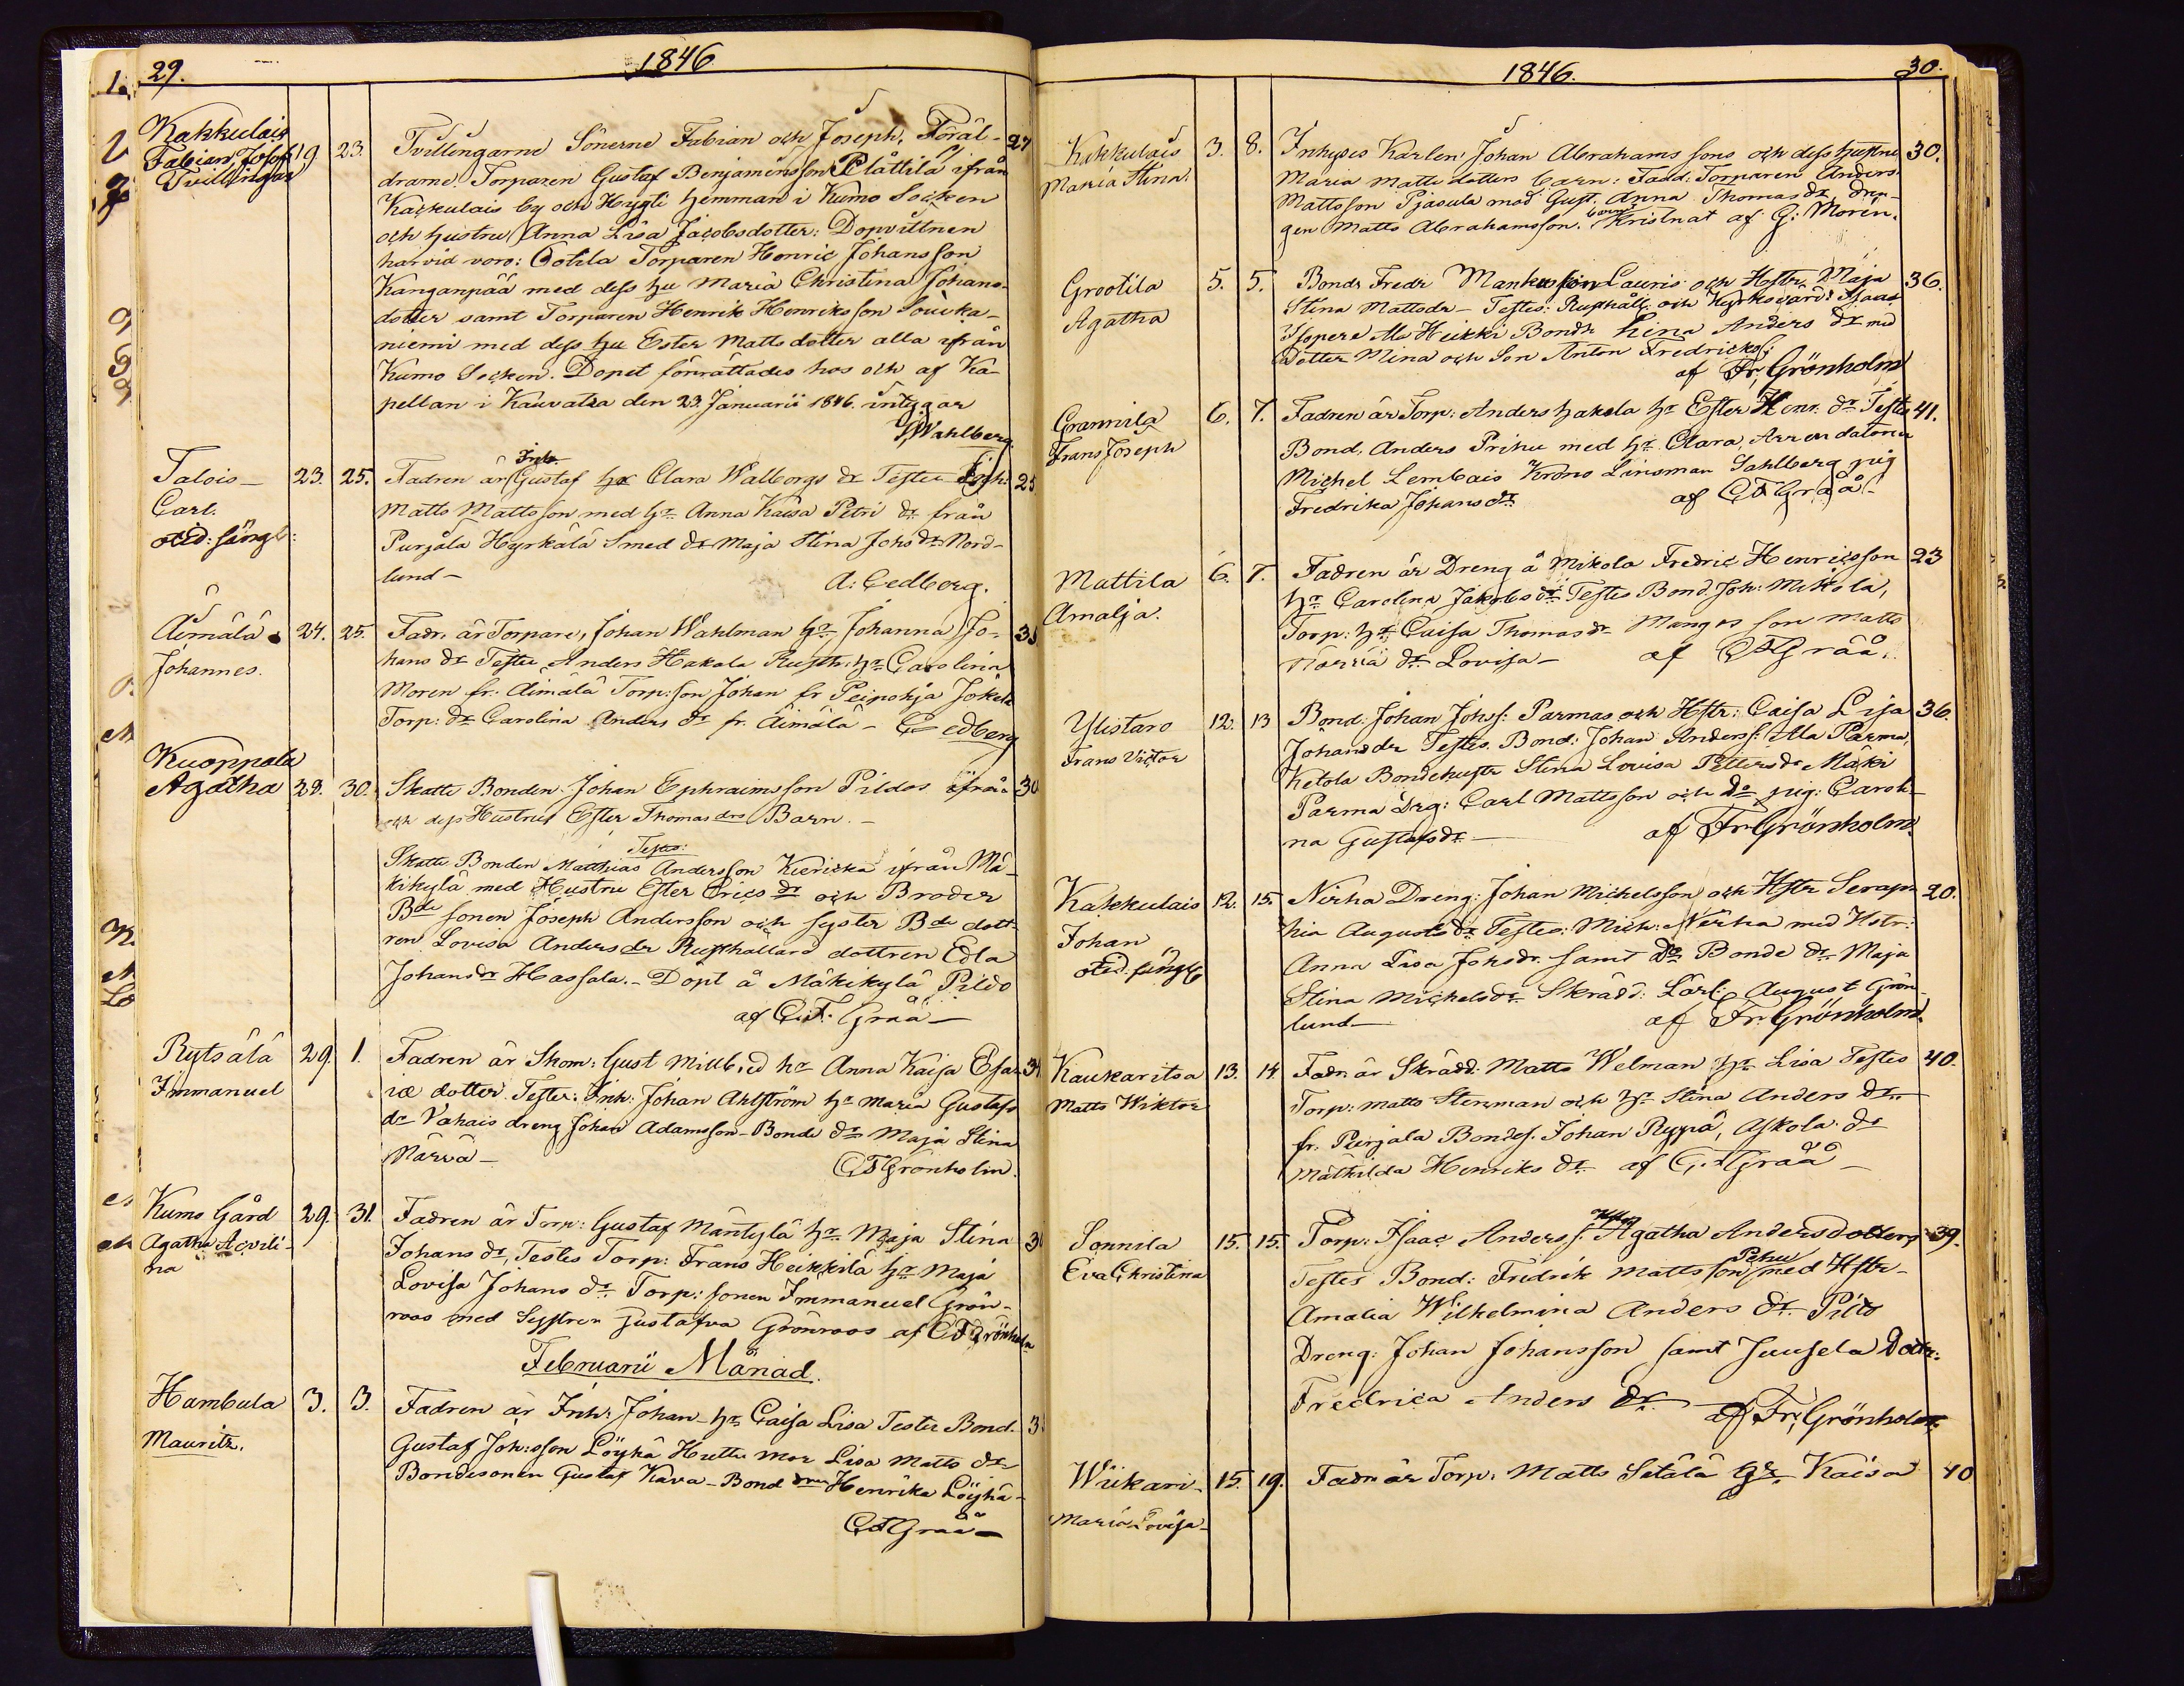 29.
1846
Kakkulais
Fabian, Josef
Tvillingar
19
23.
Tvillingarne Sönerne Fabian och Joseph. Föräl-
27
drarne Torparen Gustaf Benjaminsson Plättilä ifrån
Kackulais by och Hygli hemman i Kumo Socken
och hustru Anna Lisa Jacobsdotter: Dopvittnen
härvid voro: Torparen Henric Johansson
Kanganpää med dess hu Maria Christina Johans-
dotter samt Torparen Henrik Henriksson Souka-
niemi med dess hu Ester Mattsdotter alla ifrån
Kumo Socken. Dopet förrättades hos och af Ka-
pellan i Kauvatsa den 23 Januarii 1846. intygar
Wahlberg.
Talois-
Carl.
23.
25.
Fadren är Inh. Gustaf hr Clara Walborgs dr Testes
25
Matts Mattsson med hr Anna Kaisa Petri dr från
Purjala Hyrkälä Smed dr Maja Stina Johs dr Nord-
lund-
A: Cedberg.
Äimälä
Johannes.
24.
25.
Fadr. är Torpare, Johan Wahlman hr Johanna Jo-
hans dr Testes Anders Hakala Rusth: hr Carolina
Moren fr. Äimälä Torp: son Johan fr Peipohja Jokela
Torp: dr Carolina Anders dr fr. Äimälä - Cedberg
Kuoppala
Agatha
29.
30.
Skatte Bonden Johan Ephraimsson Pildos ifrån
30
och dess Hustrus Ester Thomas drs Barn.-
Testes:
Skatte Bonden Matthias Andersson Kiericka ifrån Mä-
kikylä med Hustru Ester Erics dr och Broder
Bde sonen Joseph Andersson och syster Bde dott-
ren Lovisa Andersdr Rusthållars dottren Edla
Johansdr Hassala.- Dopt å Mäkikylä Pildo
af C.F. Gråå-
Rytsälä
Immanuel
29.
1.
Fadren är Skom: Gust hr Anna Kaisa Esa-
iæ dotter. Testes: Inh: Johan Ahlström hr Maria Gustafs
dr Vahais dreng Johan Adamsson - Bonde dr Maja Stina
Närvä-
CF Grönholm.
Kumo Gård
Agatha Aqvili-
na
29.
31.
Fadren är Torp: Gustaf Mäntylä hr Maja Stina
Johans dr, Testes Torp: Frans Heikkilä hr Maja
Lovisa Johans dr Torp: sonen Immanuel Grön-
roos med Systren Gustafva Grönroos af CF Grönholm
Februarii Månad.
Hambula
Mauritz.
3.
3.
Fadren är Inh: Johan - hr Caisa Lisa Testes Bond.
Gustaf Johsson Löyhä Huttu mor Lisa Matts dr
Bondesonen Gustaf Käva - Bond drn Henrika Löyhä-
CF Gråå-
1846.
30.
Kakkulais
Maria Stina
3.
8.
Inhyses Karlen Johan Abrahams sons och dess hustru
30.
Maria Matts dotters barn: Fadd. Torparen Anders
Mattsson Pjasula med Gust. Anna Thomas dr dren-
gen Matts Abrahamsson. barnet Kristnat af G: Morén.
Grootila
Agatha
5.
5.
Bonde Fredr Mankusson Lauris och Hstr. Maja
36.
Stina Mattsdr - Testes: Rusthåll: och Kyrkovärd: Isaac
Isopere Ala Heikki Bonde Lina Anders dr med
Dotter Mina och Son Anton Fredricks;
af Fr; Grönholm
Grannila
Frans Joseph
6.
7.
Fadren är Torp: Anders Hakala hr Ester Henr. dr Testes
41.
Bond. Anders Prihu med hr Clara. Arrendatorn
Michel Lembais Krono Länsman Sahlberg pig
Fredrika Johans dr
af CF Gråå-
Mattila
Amalja.
6.
7.
Fadren är Dreng å Mikola Fredric Henricsson
23
hr Carolina Jakobs dr Testes Bond. Joh: Mikola,
Torp: hr Caisa Thomas dr Manges son Matts
Närvä dr Lovisa-
af CF Gråå.
Ylistaro
Frans Victor
12.
13
Bond: Johan Johss: Parmas och Hstr: Caisa Lisa
36.
Johansdr Testes. Bond: Johan Anderss: Ala Parma,
Ketola Bondehustr Stina Lovisa Pettersdr Mäki
Parma Drg: Carl Mattsson och do pig: Caroli-
na Gustafsdr-
af Fr Grönholm
Kakkulais
Johan
12.
15.
Nirha Dreng: Johan Michelsson och Hstr Serap-
20.
hia Augusts dr Testes: Mich: Nerha med Hstr:
Anna Lisa Johsdr. samt do Bonde dr Maja
Stina Michelsdr Skrädd: Lärl: August Grön-
lund-
af Fr. Grönholm.
Kaukaritsa
Matts Wiktor
13.
14
Fadr är Skrädd: Matts Welman hr Lisa Testes
40.
Torp: Matts Stenman och hr Stina Anders dr
fr. Purjala Bondes. Johan Ryypä, Askola. dr
Mathilda Henriks dr af C.F Gråå-
Sonnila
Eva Christina
15.
15.
Torp: Isaac Anderss: Hstr Agatha Andersdotters
39.
Testes Bond: Fredrik Mattsson Pehu med Hstr-
Amalia Wilhelmina Anders dr Pildo
Dreng: Johan Johansson samt Juusela Dottr:
Fredrica Anders dr-
af Fr; Grönholm
Wiikari-
Maria Lovisa-
15.
19.
Fadr är Torp: Matts Setälä hr Kaisa
40